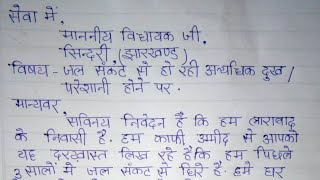 सेवा में,
माननीय विधायक जी,
सिन्दरी (झारखण्ड)
विषय - जल संकट से हो रही अत्यधिक दुख /
परेशानी होने पर.
मान्यवर,
सविनय निवेदन है कि हम लाराबाद
के निवासी है. हम काफी उम्मीद से आपको
यह दरखास्त लिख रहे है कि हम पिछले
3 सालों में जल संकट से घिरे है. हमें हर